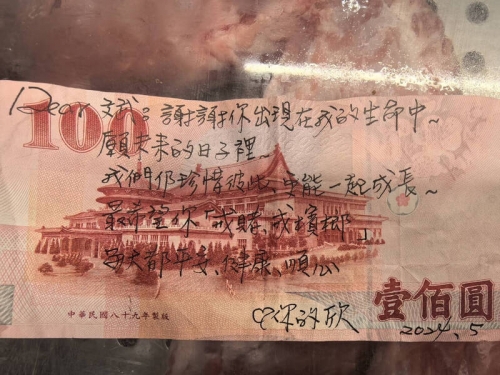 100
Dear 斌：謝謝你出現在我的生命中~
願未來的日子裡~
我們仍珍惜彼此、也能一起成長~
最希望你"戒賭、戒檳榔"
每天都平安、健康、順心
中華民國八十九年製版
♡你的欣
壹佰圓
2024.5